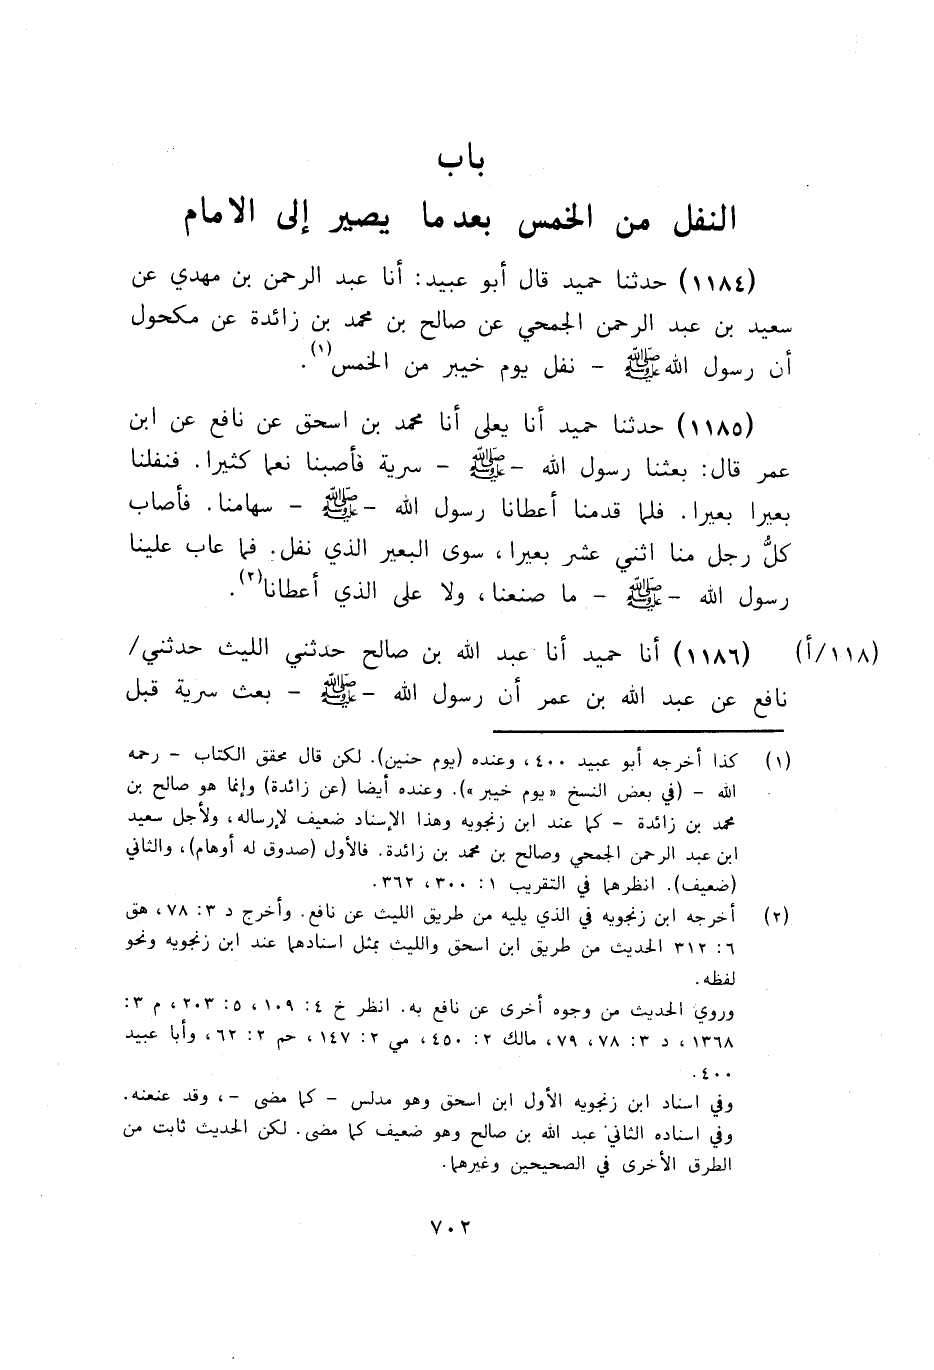 باب
النفل من الخمس بعدما يصير إلى الامام
(١١٨٤) حدثنا حميد قال أبو عبيد: أنا عبد الرحمن بن مهدي عن
سعيد بن عبد الرحمن الجمحي عن صالح بن محمد بن زائدة عن مكحول
أن رسول الله ﷺ - نفل يوم خيبر من الخمس(١).
(١١٨٥) حدثنا حميد أنا يعلى أنا محمد بن اسحق عن نافع عن ابن
عمر قال: بعثنا رسول الله - ﷺ - سرية فأصبنا نعما كثيرا. فنفلنا
بعيرا بعيرا. فلما قدمنا أعطانا رسول الله - ﷺ - سهامنا. فأصاب
كلُّ رجل منا اثني عشر بعيرا، سوى البعير الذي نفل. فما عاب علينا
رسول الله - ﷺ - ما صنعنا، ولا على الذي أعطانا(٢).
(١١٨/أ) (١١٨٦) أنا حميد أنا عبد الله بن صالح حدثني الليث حدثني/
نافع عن عبد الله بن عمر أن رسول الله - ﷺ - بعث سرية قبل
(١) كذا أخرجه أبو عبيد ٤٠٠، وعنده (يوم حنين). لكن قال محقق الكتاب - رحمه
الله - (في بعض النسخ «يوم خيبر»). وعنده أيضا (عن زائدة) وإنما هو صالح بن
محمد بن زائدة - كما عند ابن زنجويه وهذا الإسناد ضعيف لإرساله، ولأجل سعيد
ابن عبد الرحمن الجمحي وصالح بن محمد بن زائدة. فالأول (صدوق له أوهام)، والثاني
(ضعيف). انظرهما في التقريب ١: ٣٠٠، ٣٦٢.
(٢) أخرجه ابن زنجويه في الذي يليه من طريق الليث عن نافع. وأخرج د ٣: ٧٨، هق
٦: ٣١٢ الحديث من طريق ابن اسحق والليث بمثل اسنادهما عند ابن زنجويه ونحو
لفظه.
وروي الحديث من وجوه أخرى عن نافع به. انظر خ ٤: ١٠٩، ٥: ٢٠٣، م ٣:
١٣٦٨، د ٣: ٧٨، ٧٩، مالك ٢: ٤٥٠، مي ٢: ١٤٧، حم ٢: ٦٢، وأبا عبيد
٤٠٠.
وفي اسناد ابن زنجويه الأول ابن اسحق وهو مدلس - كما مضى -، وقد عنعنه.
وفي اسناده الثاني عبد الله بن صالح وهو ضعيف كما مضى. لكن الحديث ثابت من
الطرق الأخرى في الصحيحين وغيرهما.
٧٠٢